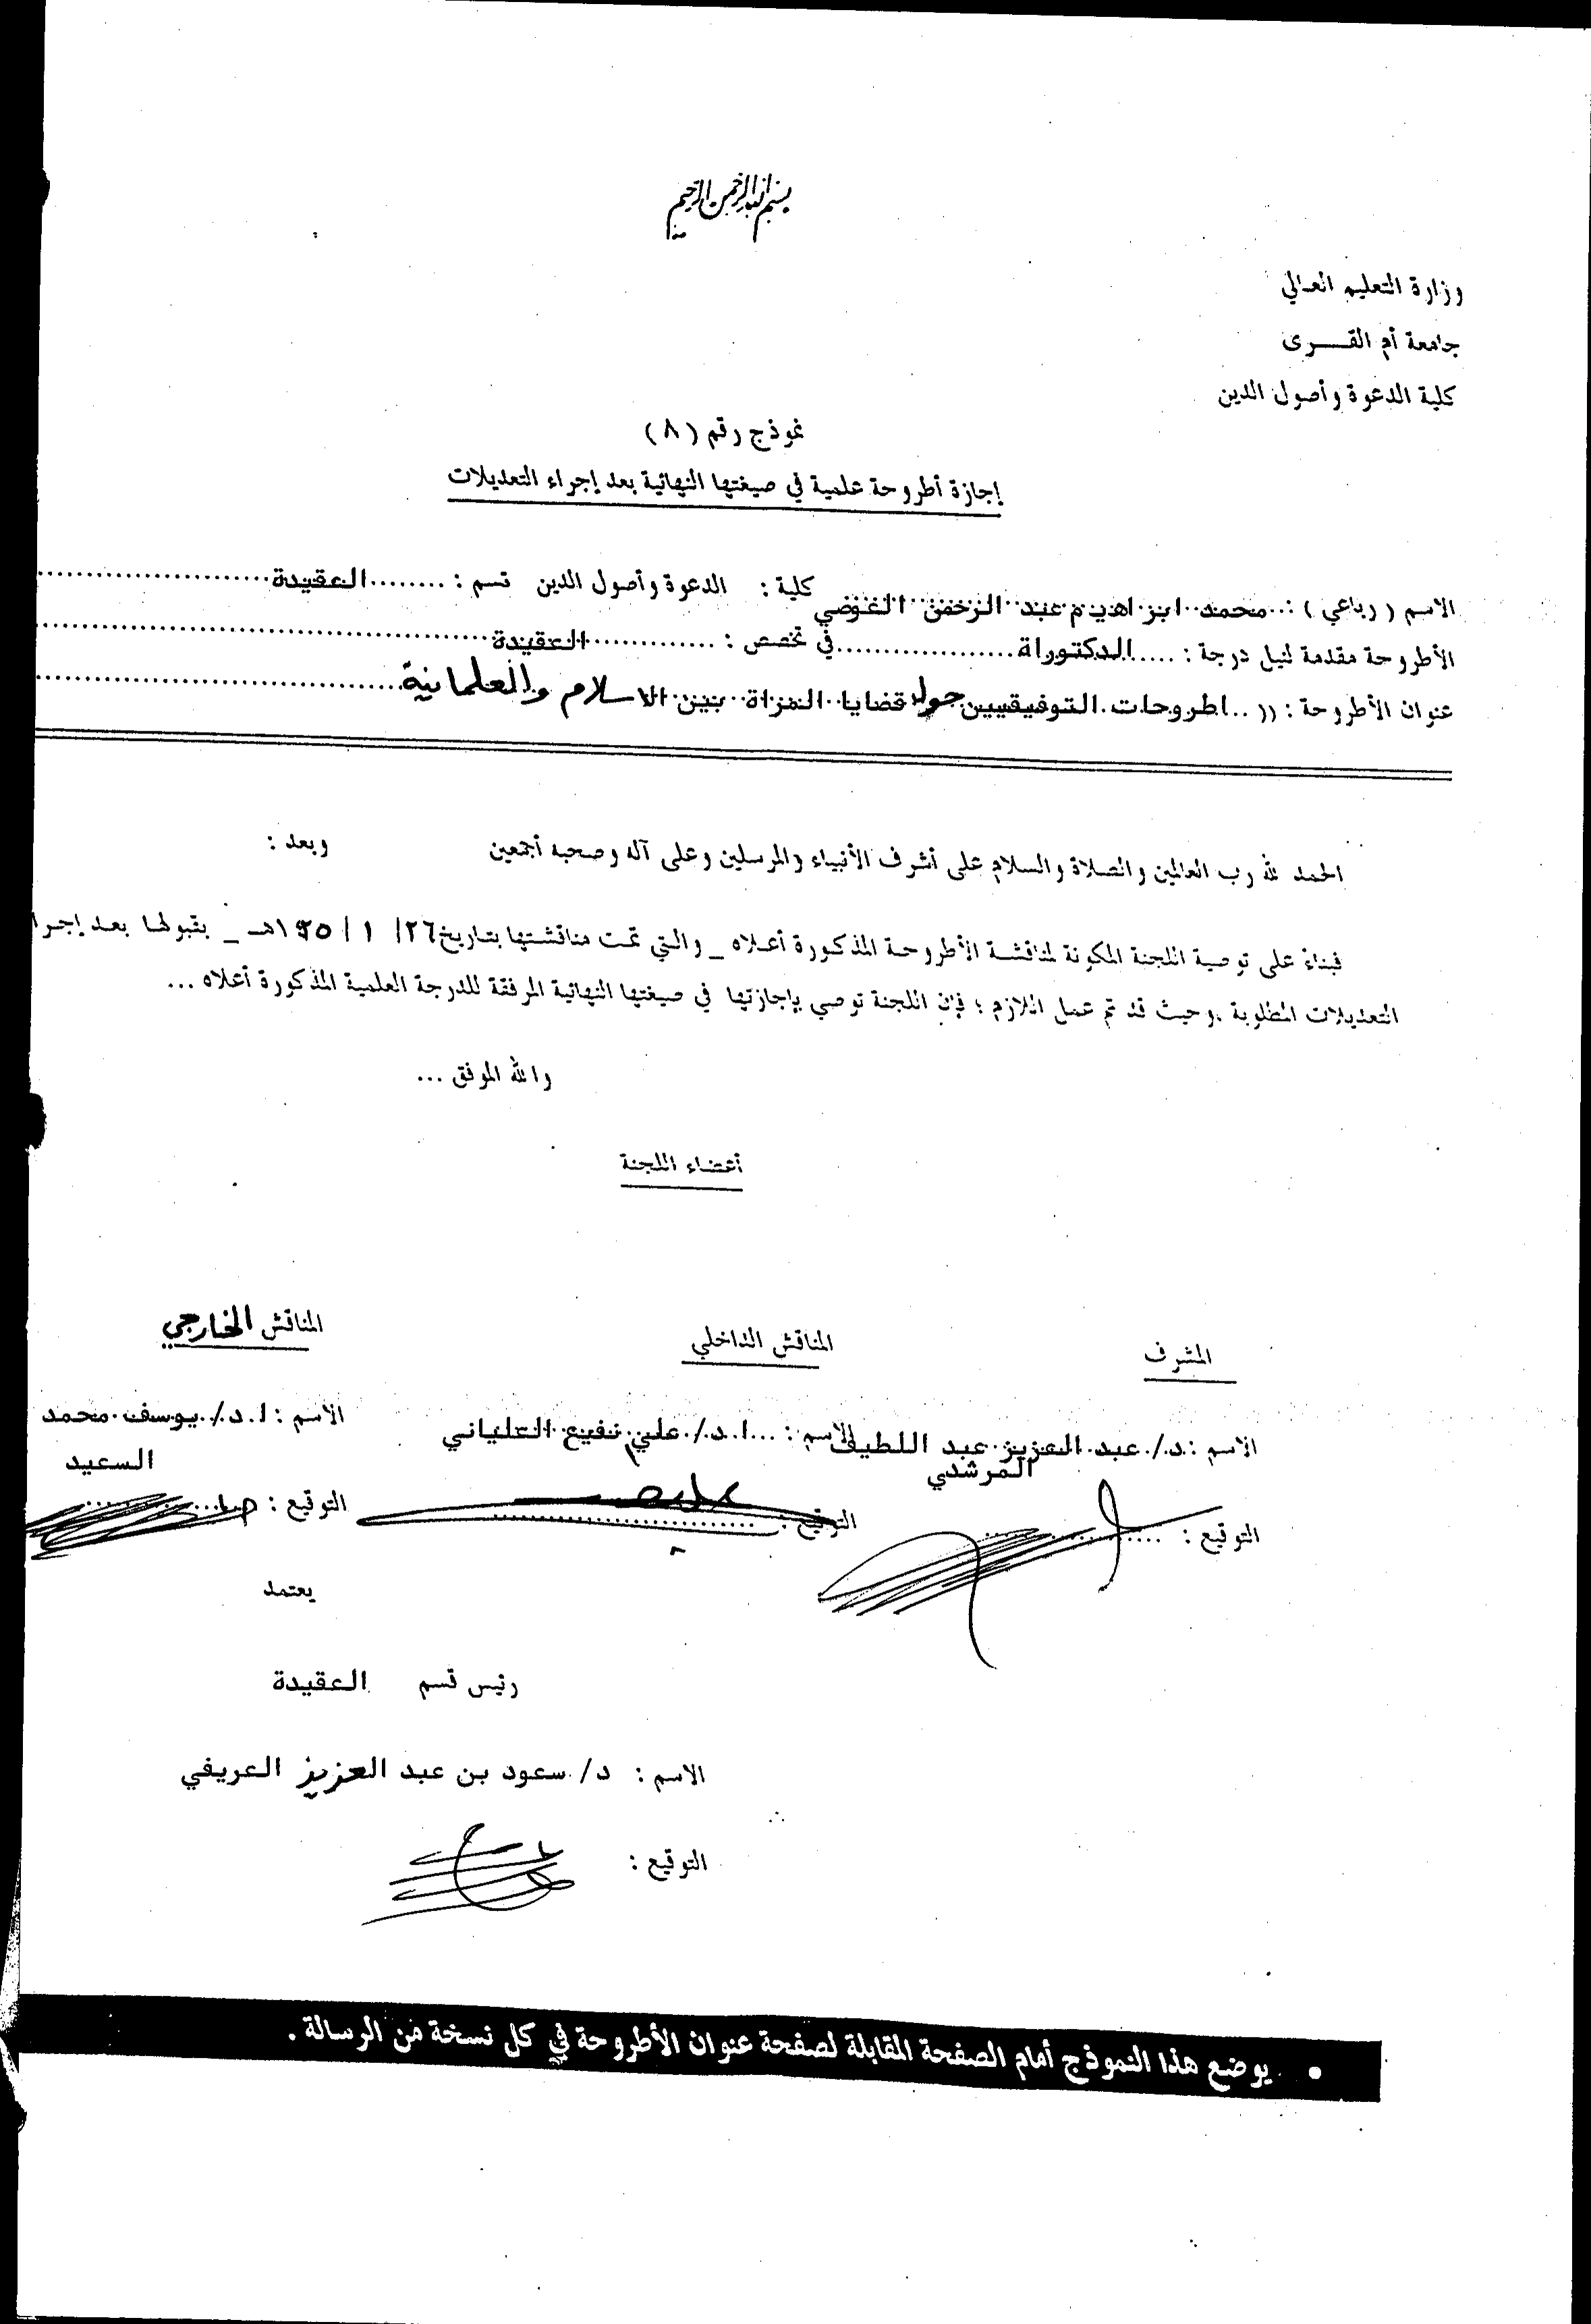 بسم الله الرحمن الرحيم
وزارة التعليم العالي
جامعة أم القـــرى
كلية الدعوة وأصول الدين
نموذج رقم ( ٨ )
إجازة أطروحة علمية في صيغتها النهائية بعد إجراء التعديلات
الاسم ( رباعي ) : محمد ابراهيم عبد الرحمن العوضي كلية : الدعوة وأصول الدين قسم : ........العقيدة........................
الأطروحة مقدمة لنيل درجة : .....الدكتوراة...................في تخصص : .............العقيدة........................
عنوان الأطروحة : (( ..اطروحات التوفيقيين حول قضايا المرأة بين الاسلام والعلمانية........................
الحمد لله رب العالمين والصلاة والسلام على أشرف الأنبياء والمرسلين وعلى آله وصحبه أجمعين وبعد :
فبناءً على توصية اللجنة المكونة لمناقشة الأطروحة المذكورة أعلاه _ والتي تمت مناقشتها بتاريخ ٢٦/ ١ / هـ _ بقبولها بعد إجرا
التعديلات المطلوبة ,وحيث قد تم عمل اللازم ؛ فإن اللجنة توصي بإجازتها في صيغتها النهائية المرفقة للدرجة العلمية المذكورة أعلاه ...
والله الموفق ...
أعضاء اللجنة
المشرف المناقش الداخلي المناقش الخارجي
الاسم : د/. عبد العزيز عبد اللطيف الاسم : ...ا.د/. علي نفيع العلياني الاسم : ا.د/.يوسف محمد
المرشدي السعيد
التوقيع : التوقيع : التوقيع :
يعتمد
رئيس قسم العقيدة
الاسم : د/ سعود بن عبد العزيز العريفي
التوقيع :
• يوضع هذا النموذج أمام الصفحة المقابلة لصفحة عنوان الأطروحة في كل نسخة من الرسالة .